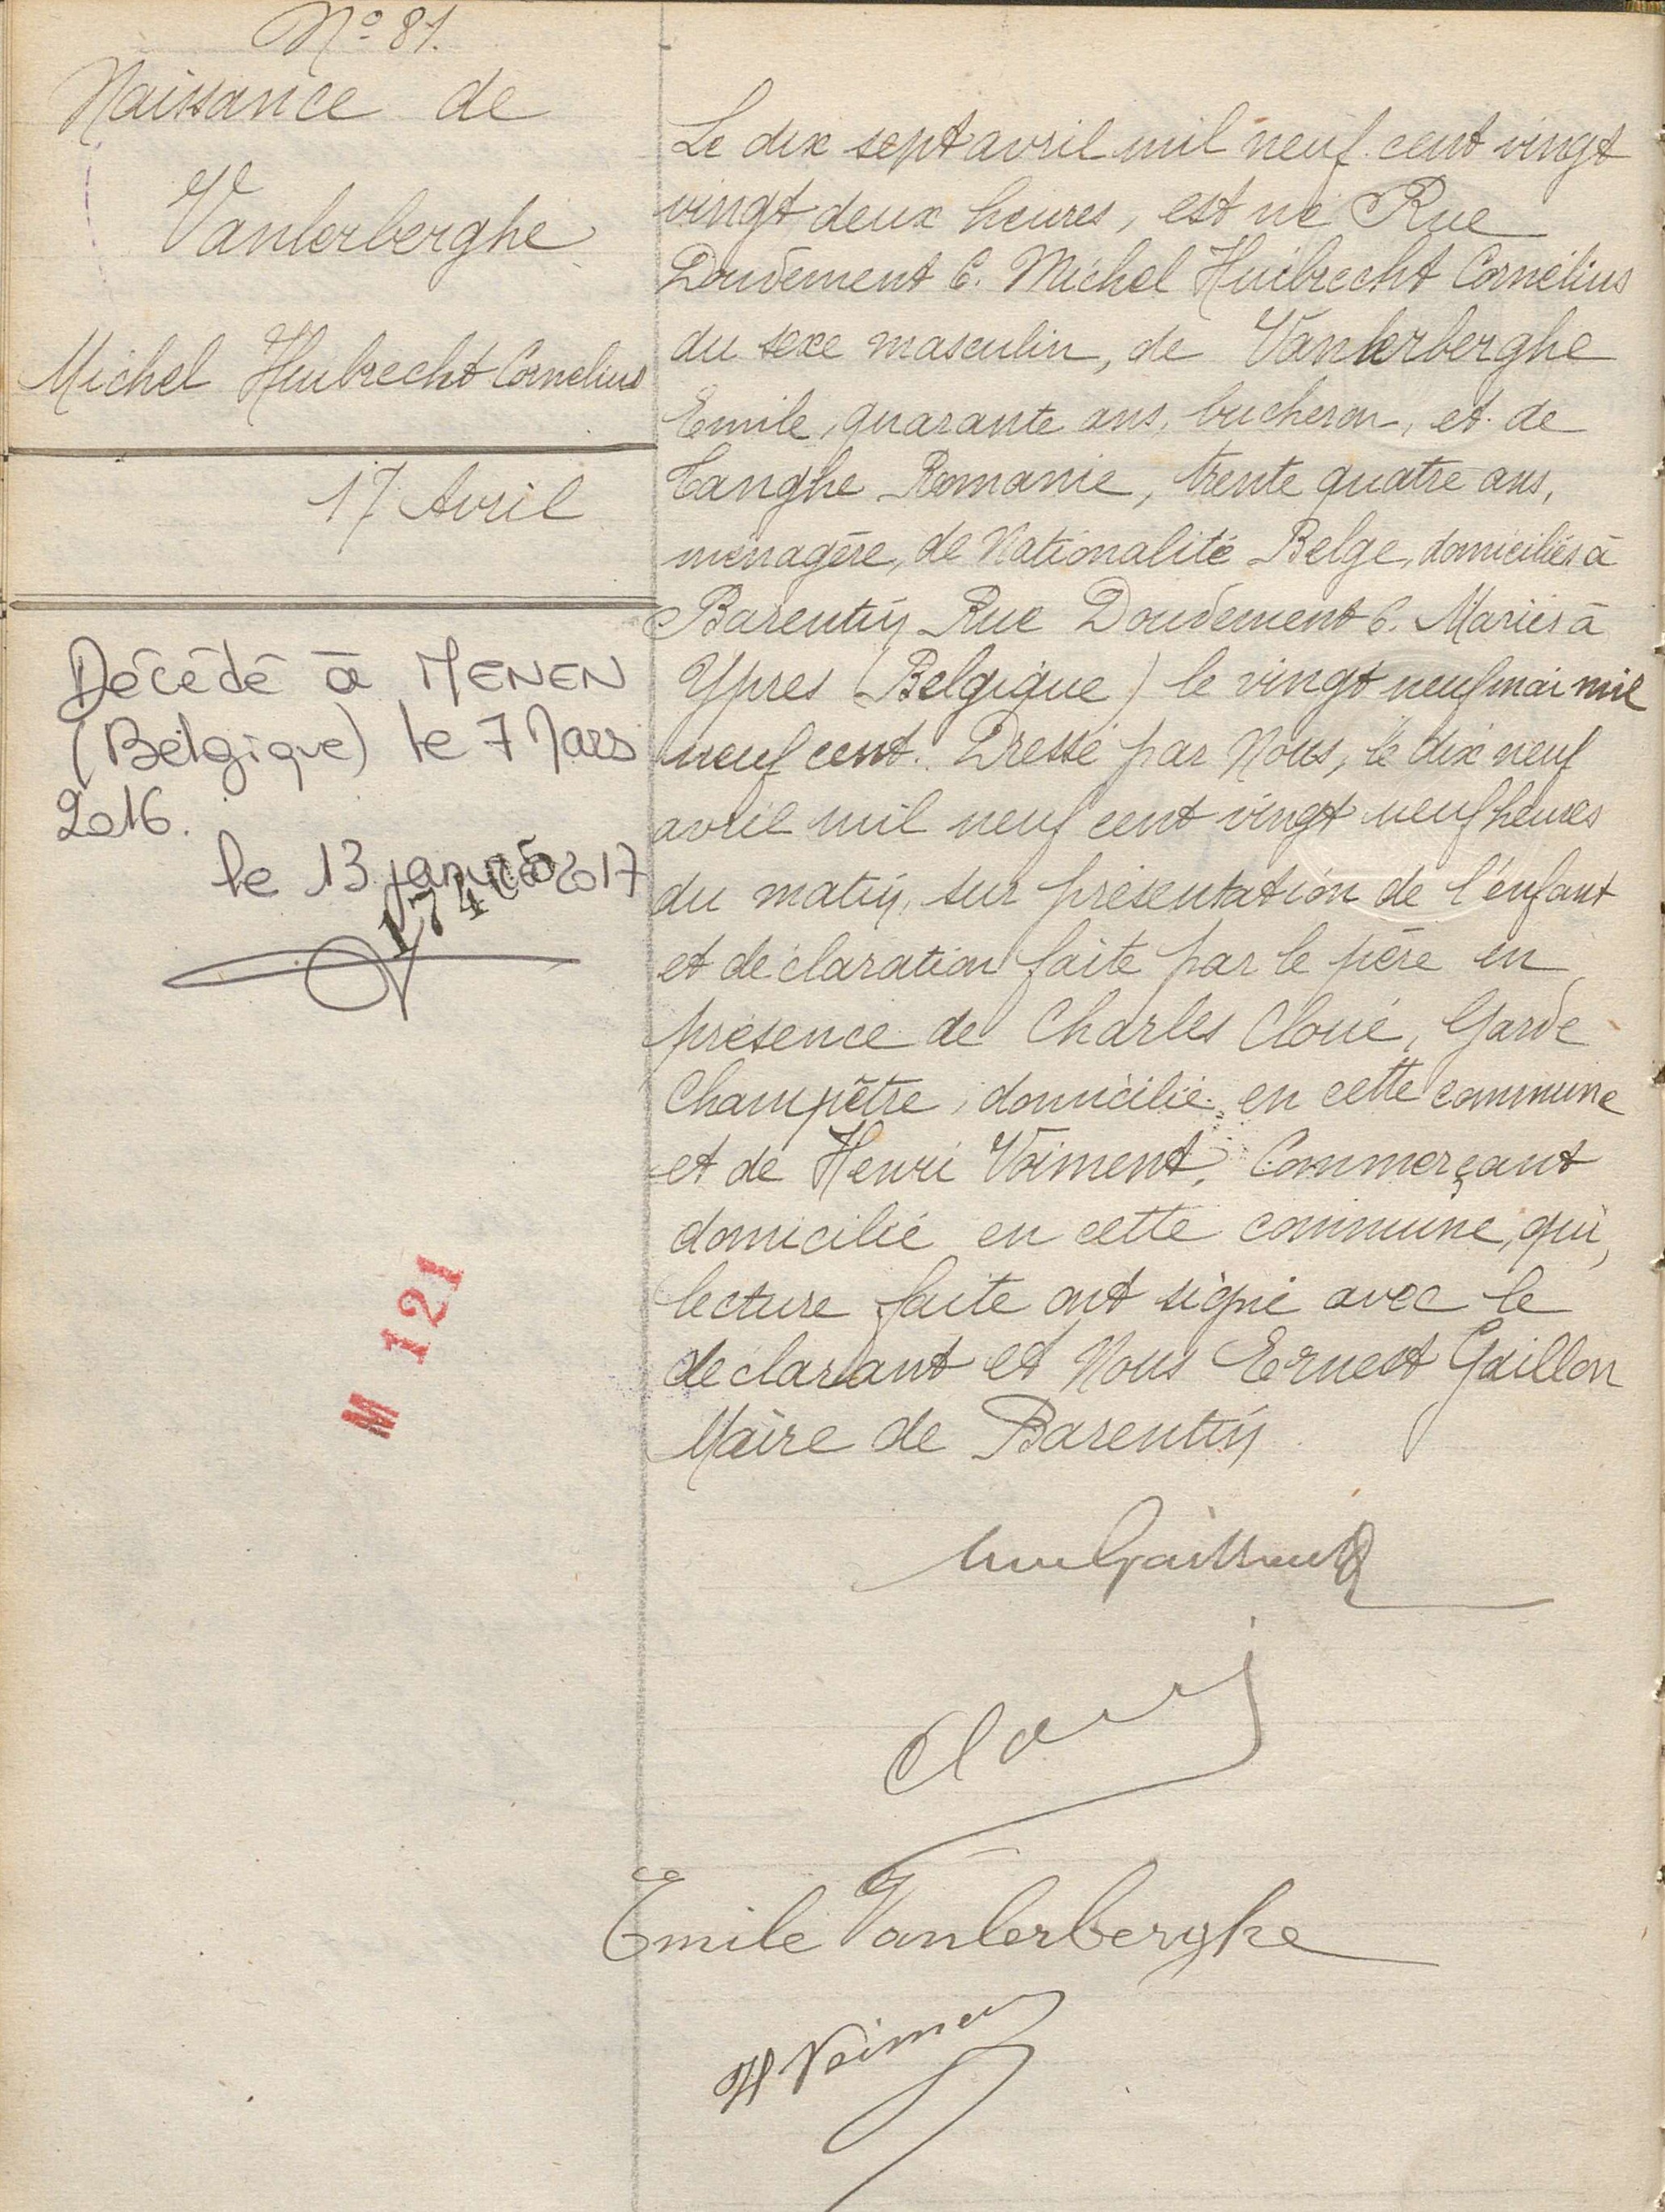 N° 81.
Naissance de
Vanlerberghe
Michel Huibrecht Cornelius
17 Avril
Décédé à MENEN
(Belgique) le 7 Mars
2016.
le 13 janvier 2017
M 121
Le dix sept avril mil neuf cent vingt
vingt deux heures, est né Rue
Doudement 6. Michel Huibrecht Cornélius
du sexe masculin, de Vanlerberghe
Emile, quarante ans, bucheron, et de
Tanghe Romanie, trente quatre ans,
ménagère, de Nationalité Belge, domiciliés à
Barentin Rue Doudement 6. Mariés à
Ypres (Belgique) le vingt neuf mai mil
neuf cent. Dressé par Nous, le dix neuf
avril mil neuf cent vingt neuf heures
du matin, sur présentation de l'enfant
et déclaration faite par le père en
présence de Charles Cloué, Garde
Champêtre, domicilié en cette commune
et de Henri Voiment, Commerçant
domicilié en cette commune, qui,
lecture faite ont signé avec le
déclarant et Nous Ernest Gaillon
Maire de Barentin
Emile Vanlerberghe